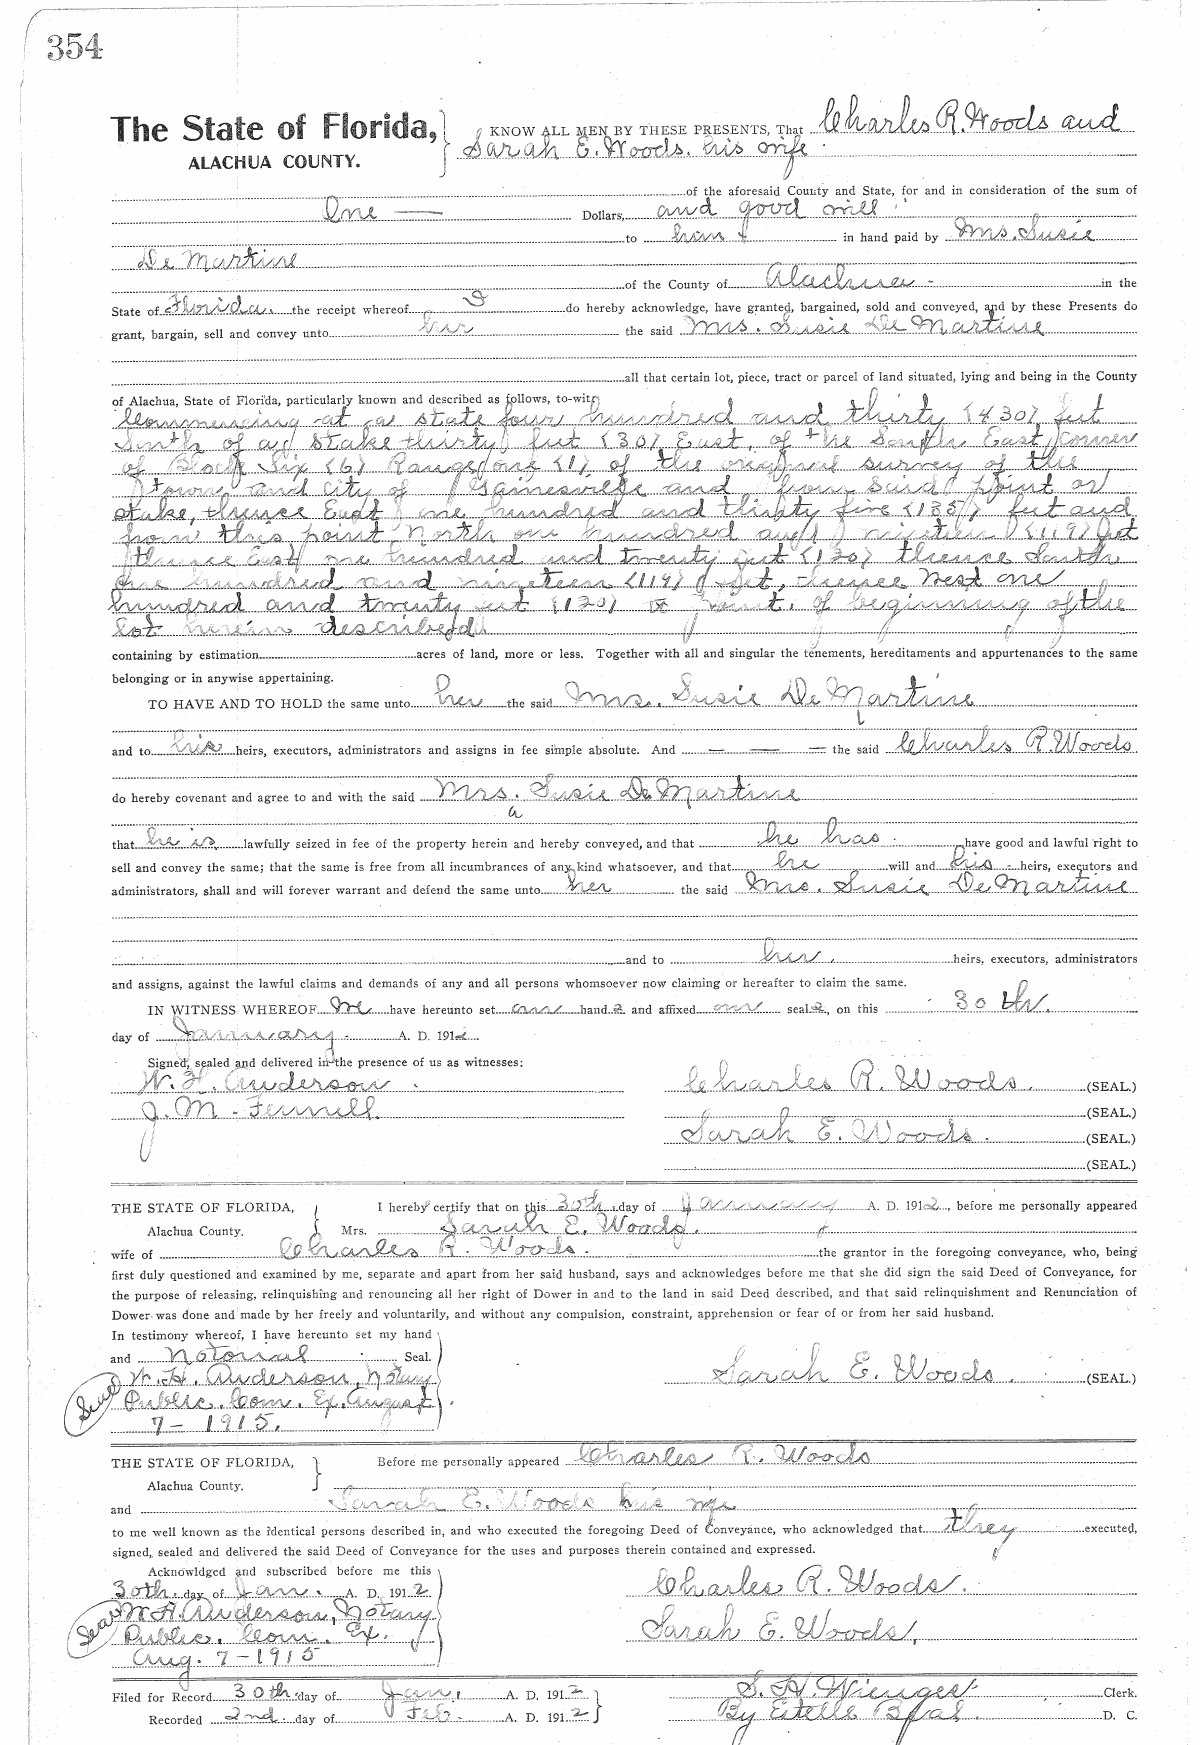 354
The State of Florida, KNOW ALL MEN BY THESE PRESENTS, That Charles R. Woods and
ALACHUA COUNTY. Sarah E. Woods. his wife
of the aforesaid County and State, for and in consideration of the sum of
One — Dollars, and good will
to him & in hand paid by Mrs. Susie
De Martine
of the County of Alachua - in the
State of Florida. the receipt whereof do hereby acknowledge, have granted, bargained, sold and conveyed, and by these Presents do
grant, bargain, sell and convey unto her the said Mrs. Susie De Martine
all that certain lot, piece, tract or parcel of land situated, lying and being in the County
of Alachua, State of Florida, particularly known and described as follows, to-wit;
Commencing at a state four hundred and thirty (430) feet
South of a stake thirty feet (30) East, of the South East corner
of Block Six (6) Range one (1) of the original survey of the
town and city of Gainesville and from said point or
stake, thence East one hundred and thirty five (135) feet and
from this point North one hundred and nineteen (119) feet
thence East one hundred and twenty feet (120) thence South
One hundred and nineteen (119) feet, thence West one
hundred and twenty feet (120) to point. of beginning of the
lot herein described
containing by estimation acres of land, more or less. Together with all and singular the tenements, hereditaments and appurtenances to the same
belonging or in anywise appertaining.
TO HAVE AND TO HOLD the same unto her the said Mrs. Susie De Martine
and to his heirs, executors, administrators and assigns in fee simple absolute. And — — — the said Charles R. Woods
do hereby covenant and agree to and with the said Mrs. Susie De Martine
that he is lawfully seized in fee of the property herein and hereby conveyed, and that he has have good and lawful right to
sell and convey the same; that the same is free from all incumbrances of any kind whatsoever, and that he will and his heirs, executors and
administrators, shall and will forever warrant and defend the same unto her the said Mrs. Susie De Martine
and to her. heirs, executors, administrators
and assigns, against the lawful claims and demands of any and all persons whomsoever now claiming or hereafter to claim the same.
IN WITNESS WHEREOF We have hereunto set our hand s and affixed our seal s, on this 30th.
day of January A. D. 1912
Signed, sealed and delivered in the presence of us as witnesses:
W. H. Anderson Charles R. Woods. (SEAL.)
J. M. Fennell. (SEAL.)
Sarah E. Woods. (SEAL.)
(SEAL.)
THE STATE OF FLORIDA, I hereby certify that on this 30th day of January A. D. 1912, before me personally appeared
Alachua County. Mrs. Sarah E. Woods.
wife of Charles R. Woods. the grantor in the foregoing conveyance, who, being
first duly questioned and examined by me, separate and apart from her said husband, says and acknowledges before me that she did sign the said Deed of Conveyance, for
the purpose of releasing, relinquishing and renouncing all her right of Dower in and to the land in said Deed described, and that said relinquishment and Renunciation of
Dower was done and made by her freely and voluntarily, and without any compulsion, constraint, apprehension or fear of or from her said husband.
In testimony whereof, I have hereunto set my hand
and Notorial Seal.
Seal W. H. Anderson, Notary Sarah E. Woods. (SEAL.)
Public. Com. Ex. August
7 - 1915.
THE STATE OF FLORIDA, Before me personally appeared Charles R. Woods
Alachua County.
and Sarah E. Woods his wife
to me well known as the identical persons described in, and who executed the foregoing Deed of Conveyance, who acknowledged that they executed,
signed, sealed and delivered the said Deed of Conveyance for the uses and purposes therein contained and expressed.
Acknowldged and subscribed before me this
30th. day of Jan. A. D. 1912 Charles R. Woods.
Seal W. H. Anderson, Notary
Public. Com. Ex. Sarah E. Woods,
Aug. 7 - 1915
Filed for Record 30th. day of Jan. A. D. 1912 S. H. Wienges Clerk.
Recorded 2nd. day of Feb. A. D. 1912 By Estelle D. C.